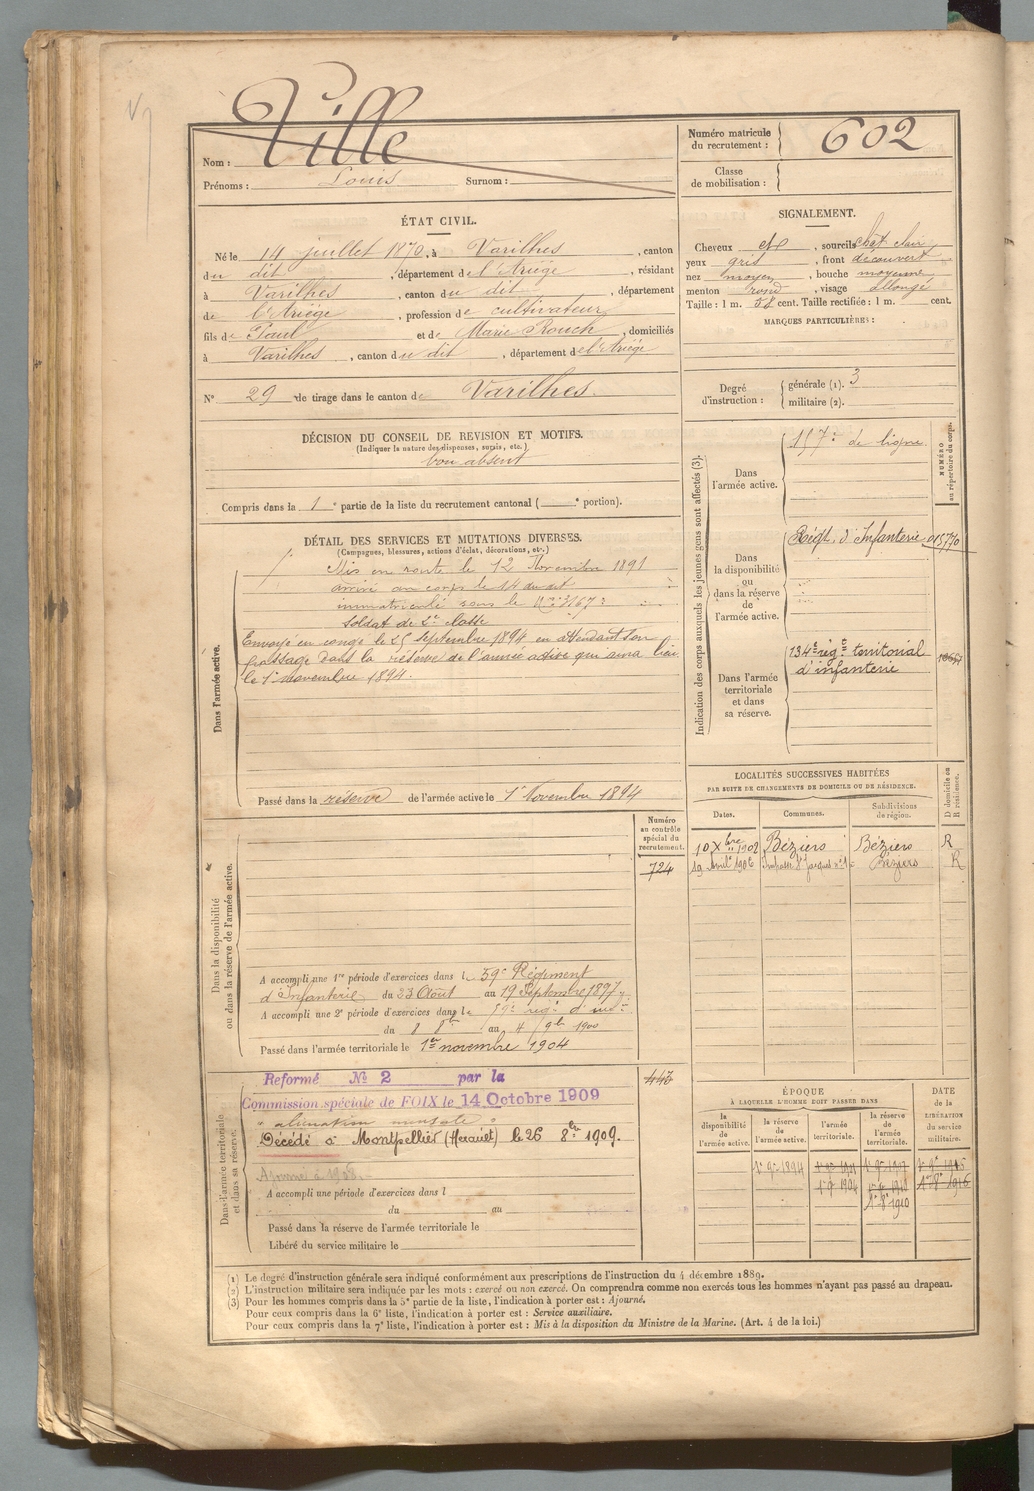 Ville
Nom :
Prénoms : Louis Surnom :
Numéro matricule du recrutement : 602
Classe de mobilisation :
ÉTAT CIVIL.
Né le 14 juillet 1870, à Varilhes, canton
du dit, département de l'Ariège, résidant
à Varilhes, canton du dit, département
de l'Ariége, profession de cultivateur
fils de Paul et de Marie Rouch, domiciliés
à Varilhes, canton du dit, département de l'Ariége
N° 29 de tirage dans le canton de Varilhes.
SIGNALEMENT.
Cheveux, sourcils chât clair
yeux gris, front découvert
nez moyen, bouche moyenne,
menton rond, visage allongé
Taille : 1 m. 58 cent. Taille rectifiée : 1 m. cent.
MARQUES PARTICULIÈRES :
Degré d'instruction :
générale (1). 3
militaire (2).
DÉCISION DU CONSEIL DE REVISION ET MOTIFS.
(Indiquer la nature des dispenses, sursis, etc.)
bon absent
Compris dans la 1e partie de la liste du recrutement cantonal ( e portion).
DÉTAIL DES SERVICES ET MUTATIONS DIVERSES.
(Campagnes, blessures, actions d'éclat, décorations, etc.)
Dans l'armée active.
Mis en route le 12 Novembre 1891
arrivé au corps le 14 du dit
immatriculé sous le
soldat de 2e classe
Envoyé en congé le 25 septembre 1894 en attendant son
passage dans la réserve de l'armée active qui aura lieu
le 1er novembre 1894.
Passé dans la réserve de l'armée active le 1er Novembre 1894
Indication des corps auxquels les jeunes gens sont affectés (3).
NUMÉRO au répertoire du corps.
Dans l'armée active.
157e de ligne
Dans la disponibilité ou dans la réserve de l'armée active.
Régt. d'Infanterie
Dans l'armée territoriale et dans sa réserve.
134e régt territorial
d'infanterie
LOCALITÉS SUCCESSIVES HABITÉES
PAR SUITE DE CHANGEMENTS DE DOMICILE OU DE RÉSIDENCE.
Dates. Communes. Subdivisions de région. D domicile ou R résidence.
10 Xbre 1902 Béziers Béziers R
19 Avril 1906 Impasse St Jacques Béziers R
Dans la disponibilité ou dans la réserve de l'armée active.
Numéro au contrôle spécial du recrutement.
724
A accompli une 1re période d'exercices dans le 59e Régiment
d'Infanterie du 23 Août au 19 Septembre 1897
A accompli une 2e période d'exercices dans le 59e régt d'inf
du 8 8bre au 4 9bre 1900
Passé dans l'armée territoriale le 1er novembre 1904
Dans l'armée territoriale et dans sa réserve.
Reformé No 2 par la
Commission spéciale de FOIX le 14 Octobre 1909
" aliénation mentale "
Décédé à Montpellier (Hérault) le 26 8bre 1909.
Ajourné à 1908.
A accompli une période d'exercices dans l
du au
Passé dans la réserve de l'armée territoriale le
Libéré du service militaire le
ÉPOQUE
À LAQUELLE L'HOMME DOIT PASSER DANS
la disponibilité de l'armée active. la réserve de l'armée active. l'armée territoriale. la réserve de l'armée territoriale.
DATE de la LIBÉRATION du service militaire.
1er 9bre 1894
1er 9bre 1904
1er 8bre 1910
1er 8bre 1916
(1) Le degré d'instruction générale sera indiqué conformément aux prescriptions de l'instruction du 4 décembre 1889.
(2) L'instruction militaire sera indiquée par les mots : exercé ou non exercé. On comprendra comme non exercés tous les hommes n'ayant pas passé au drapeau.
(3) Pour les hommes compris dans la 5e partie de la liste, l'indication à porter est : Ajourné.
Pour ceux compris dans la 6e liste, l'indication à porter est : Service auxiliaire.
Pour ceux compris dans la 7e liste, l'indication à porter est : Mis à la disposition du Ministre de la Marine. (Art. 4 de la loi.)